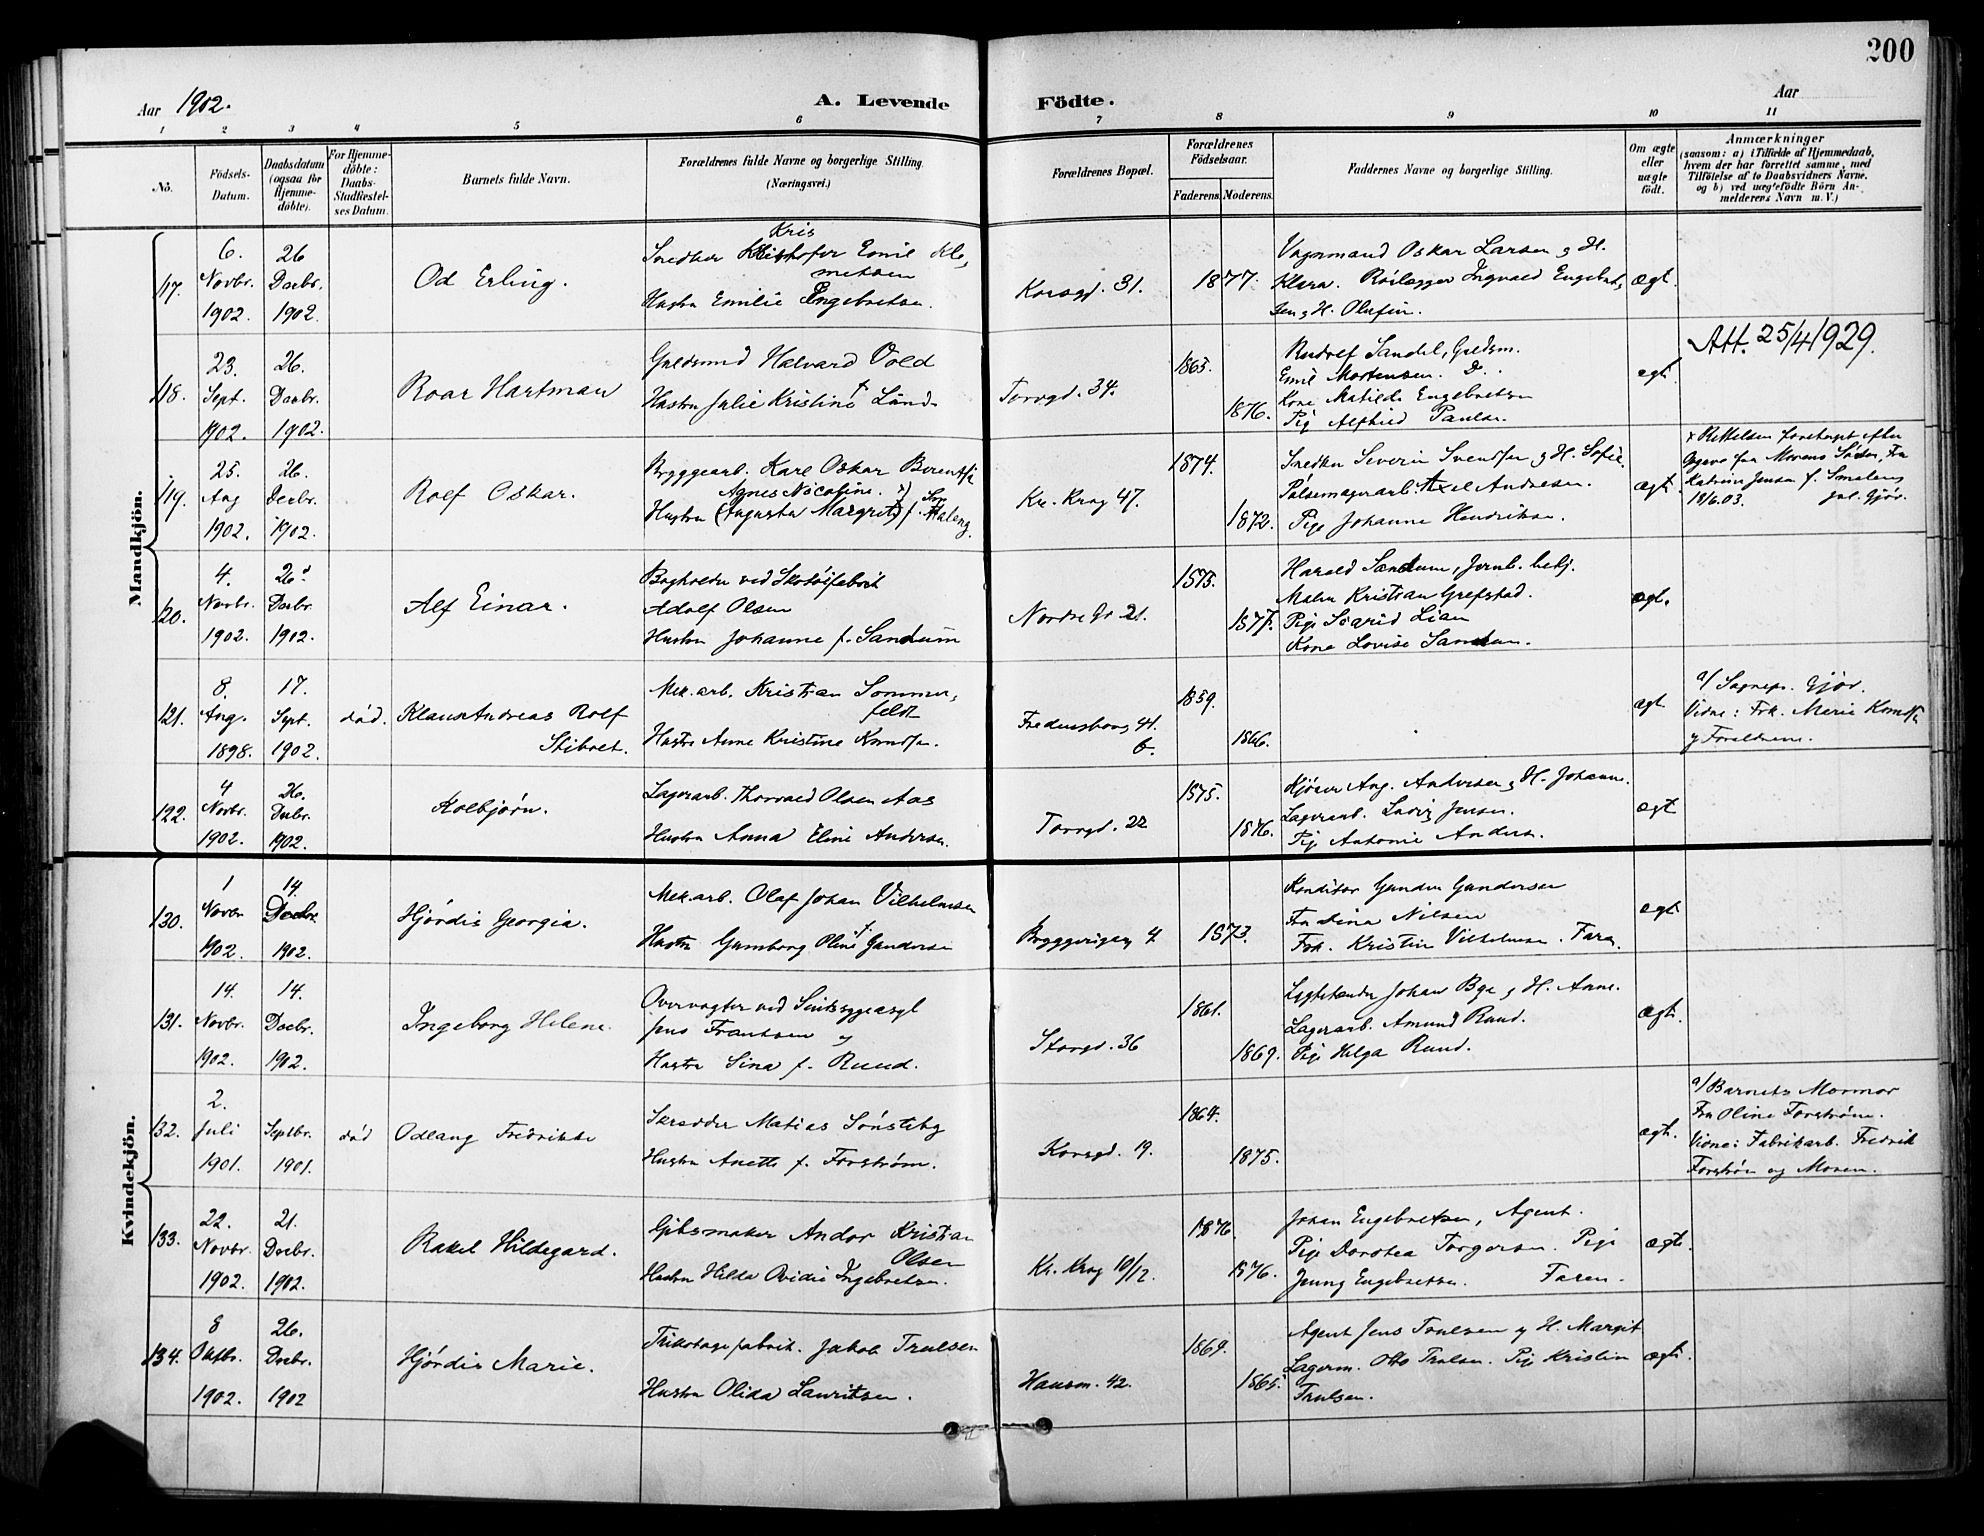 200
Aar 1902.
A. Levende Födte.
Aar
1 2 3 4 5 6 7 8 9 10 11
No.
Födsels-Datum.
Daabsdatum (ogsaa for Hjemme-döbte).
For Hjemme-döbte: Daabs-Stadfæstel-ses Datum.
Barnets fulde Navn.
Forældrenes fulde Navne og borgerlige Stilling. (Næringsvei.)
Forældrenes Bopæl.
Forældrenes Födselsaar.
Faderens. Moderens.
Faddernes Navne og borgerlige Stilling.
Om ægte eller uægte födt.
Anmærkninger
(saasom: a) i Tilfælde af Hjemmedaab, hvem der har forrettet samme, med Tilföielse af to Daabsvidners Navne, og b) ved uægtefödte Börn An-melderens Navn m. V.)
Mandkjön.
117. 6. Novbr. 1902. 26 Decbr. 1902.
Od Erling.
Snedker Kristofer Emil Kle,
Kris
messen
Hustru Emilie Engebretsen.
Korsgd. 31.
1877.
Vognmand Oskar Larsen g H.
Klara. Rörlægger Ingvald Engebret,
sen g H. Olufine.
ægt.
118. 23. Sept. 1902. 26. Decbr. 1902.
Roar Hartman
Guldsmed Halvard Vold
Hustru Julie Kristine f Lund
Torvgd. 34.
1863. 1876.
Rudolf Sandel, Guldsm.
Emil Mortensen. D.
Kone Matilde Engebretsen
Pig Alfhild Paulsen
ægt.
Att. 25/4 1929.
119. 25. Aug 1902. 26. Decbr. 1902.
Rolf Oskar.
Bryggearb. Karl Oskar Berentsen
Agnes Nicoline. x)
Hustru (Augusta Margrit) f. Smaleng.
Kr. Krog 47.
1874. 1872.
Snedker Severin Svendsen g H. Sofie.
Pölsemagerarb. Axel Andresen.
Pige Johanne Hendriksen.
ægt.
x Rettelsen foretaget efter
Opgave fra Morens Söster, Fru
Katrine Jensen f. Smaleng
18/6.03. Jul. Gjör.
120. 4. Novbr. 1902. 26 Decbr. 1902.
Alf Einar.
Bogholder ved Skotöifabrik
Adolf Olsen
Hustru Johanne f. Sandum
Nordre Gd 21.
1875. 1877.
Harald Sandum, Jernb. betj.
Maler Kristian Grefstad.
Pige Sigrid Lian
Kone Lovise Sandum.
ægt.
121. 8. Aug. 1898. 17. Sept. 1902.
död.
Klaus Andreas Rolf
Stibolt.
Mek. arb. Kristian Sommer,
feldt
Hustru Anne Kristine Knudsen.
Fredensborg 41.
b.
1859. 1866.
ægt
a/ Sognepr. Gjör.
Vidne: Frk. Marie Knudsen
g Forældrene.
122. 4 Novbr. 1902. 26. Decbr. 1902.
Kolbjörn.
Lagerarb. Thorvald Olsen Aas
Hustru Anna Eline Andersen.
Torvgd. 22
1875. 1876.
Kjörer Aug. Andersen g H. Johanne.
Lagerarb. Ludvig Jensen.
Pige Antonie Andersen.
ægt
Kvindekjön.
130. 1 Novbr 1902. 14. Decbr. 1902.
Hjördis Georgia.
Mek. arb. Olaf Johan Vilhelmsen
Hustru Gunborg Oline f. Gundersen
Bryggerigang 4
1873.
Konditor Gunder Gundersen
Fru Lina Nilsen
Frk. Kristin Vilhelmsen. Faren.
ægt
131. 14. Novbr. 1902. 14. Decbr. 1902.
Ingeborg Helene.
Overvogter ved Sindssygeasyl
Jens Frantsen g
Hustru Sina f. Ruud.
Storgd. 36
1861. 1869.
Lygtetænder Johan Bye g H. Anne.
Lagerarb. Amund Ruud.
Pige Helga Ruud.
ægt.
132. 2. Juli 1901. Septbr. 1901.
död
Odlaug Fredrikke
Skrædder Matias Sönsteby
Hustru Anette f. Forström.
Korsgd. 19.
1864. 1875.
ægt.
a/ Barnets Mormor
Fru Oline Forström.
Vidne: Fabrikarb. Fredrik
Forström og Moren.
133. 22. Novbr. 1902. 21. Decbr. 1902.
Rakel Hildegard.
Gibsmaker Andor Kristian
Olsen
Hustru Hilda Ovidie Ingebretsen.
Kr. Krog 10/12.
1876. 1876.
Johan Engebretsen, Agent.
Pige Dorotea Torgersen. Pige
Jenny Engebretsen. Faren.
ægt.
134. 8 Oktbr. 1902. 26. Decbr. 1902
Hjördis Marie.
Trikotagefabrik. Jakob Trulsen
Hustru Olida Lauritsen.
Hausm. 42.
1869. 1865.
Agent Jens Trulsen g H. Margit
Lagerm. Otto Trulsen. Pige Kristin
Trulsen.
ægt.